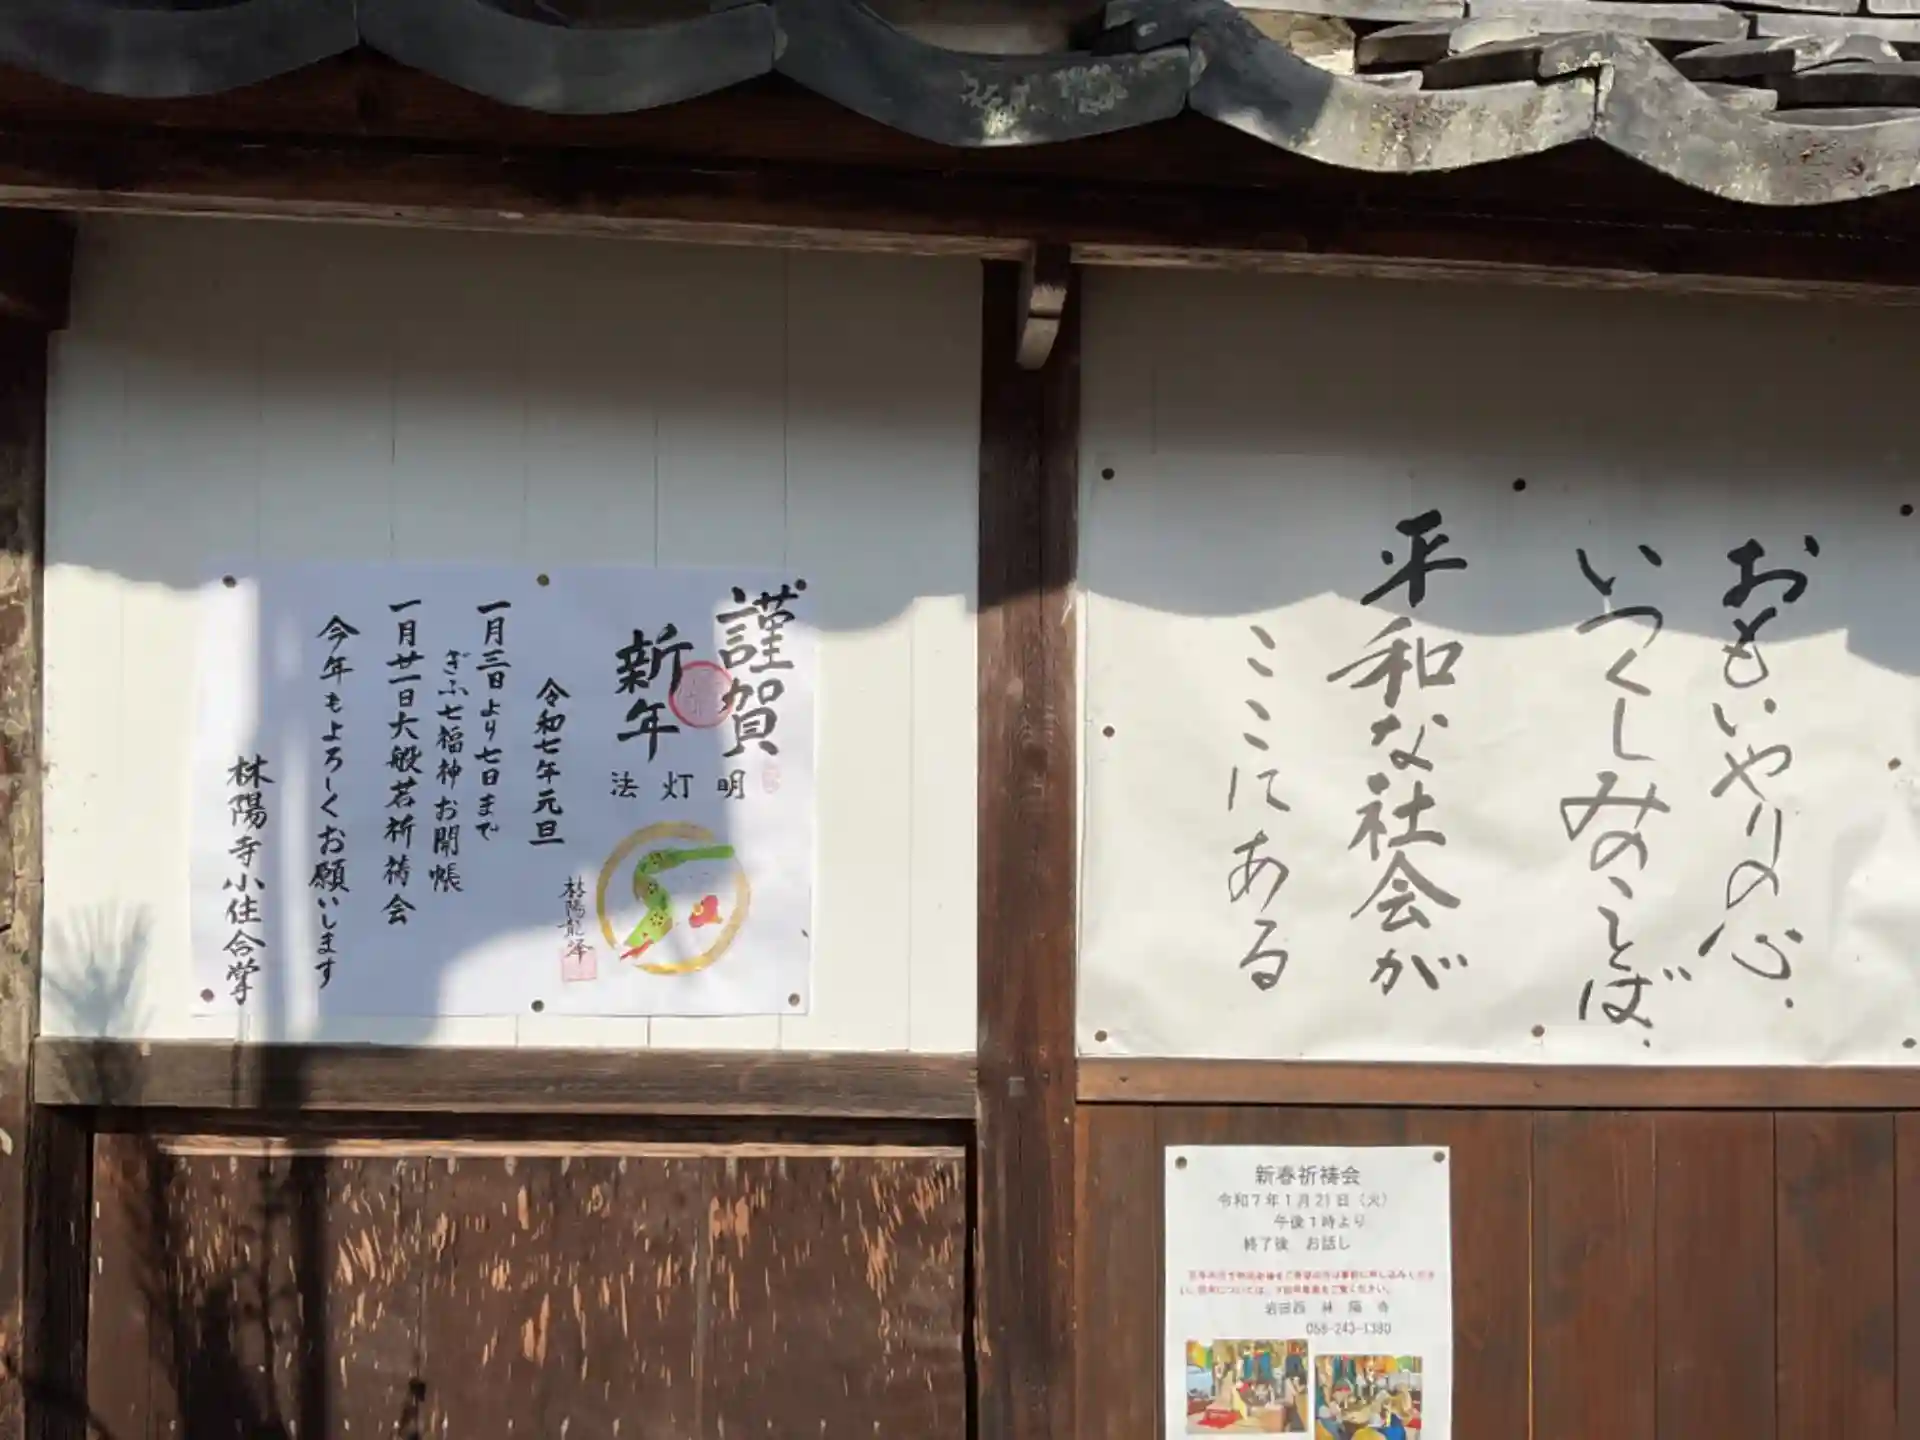 おもいやりの心.
いつくしみのことば.
平和な社会が
ここにある
謹賀
新年
法灯明
令和七年元旦
一月三日より七日まで
ぎふ七福神お開帳
一月廿一日大般若祈祷会
今年もよろしくお願いします
林陽寺小住合掌
新春祈祷会
令和7年1月21日（火）
午後1時より
終了後 お話し
岩田西 林 陽 寺
058-243-1380